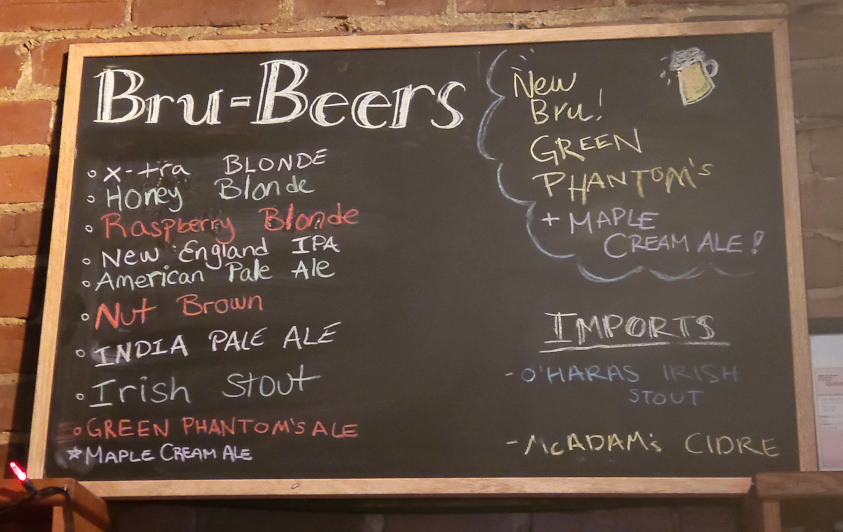 Bru-Beers
◦ X-tra BLONDE
◦ Honey Blonde
◦ Raspberry Blonde
◦ New England IPA
◦ American Pale Ale
◦ Nut Brown
◦ INDIA PALE ALE
◦ Irish Stout
◦ GREEN PHANTOM'S ALE
* MAPLE CREAM ALE
New
Bru!
GREEN
PHANTOM'S
+ MAPLE
CREAM ALE!
IMPORTS
- O'HARAS IRISH
STOUT
- McADAM's CIDRE